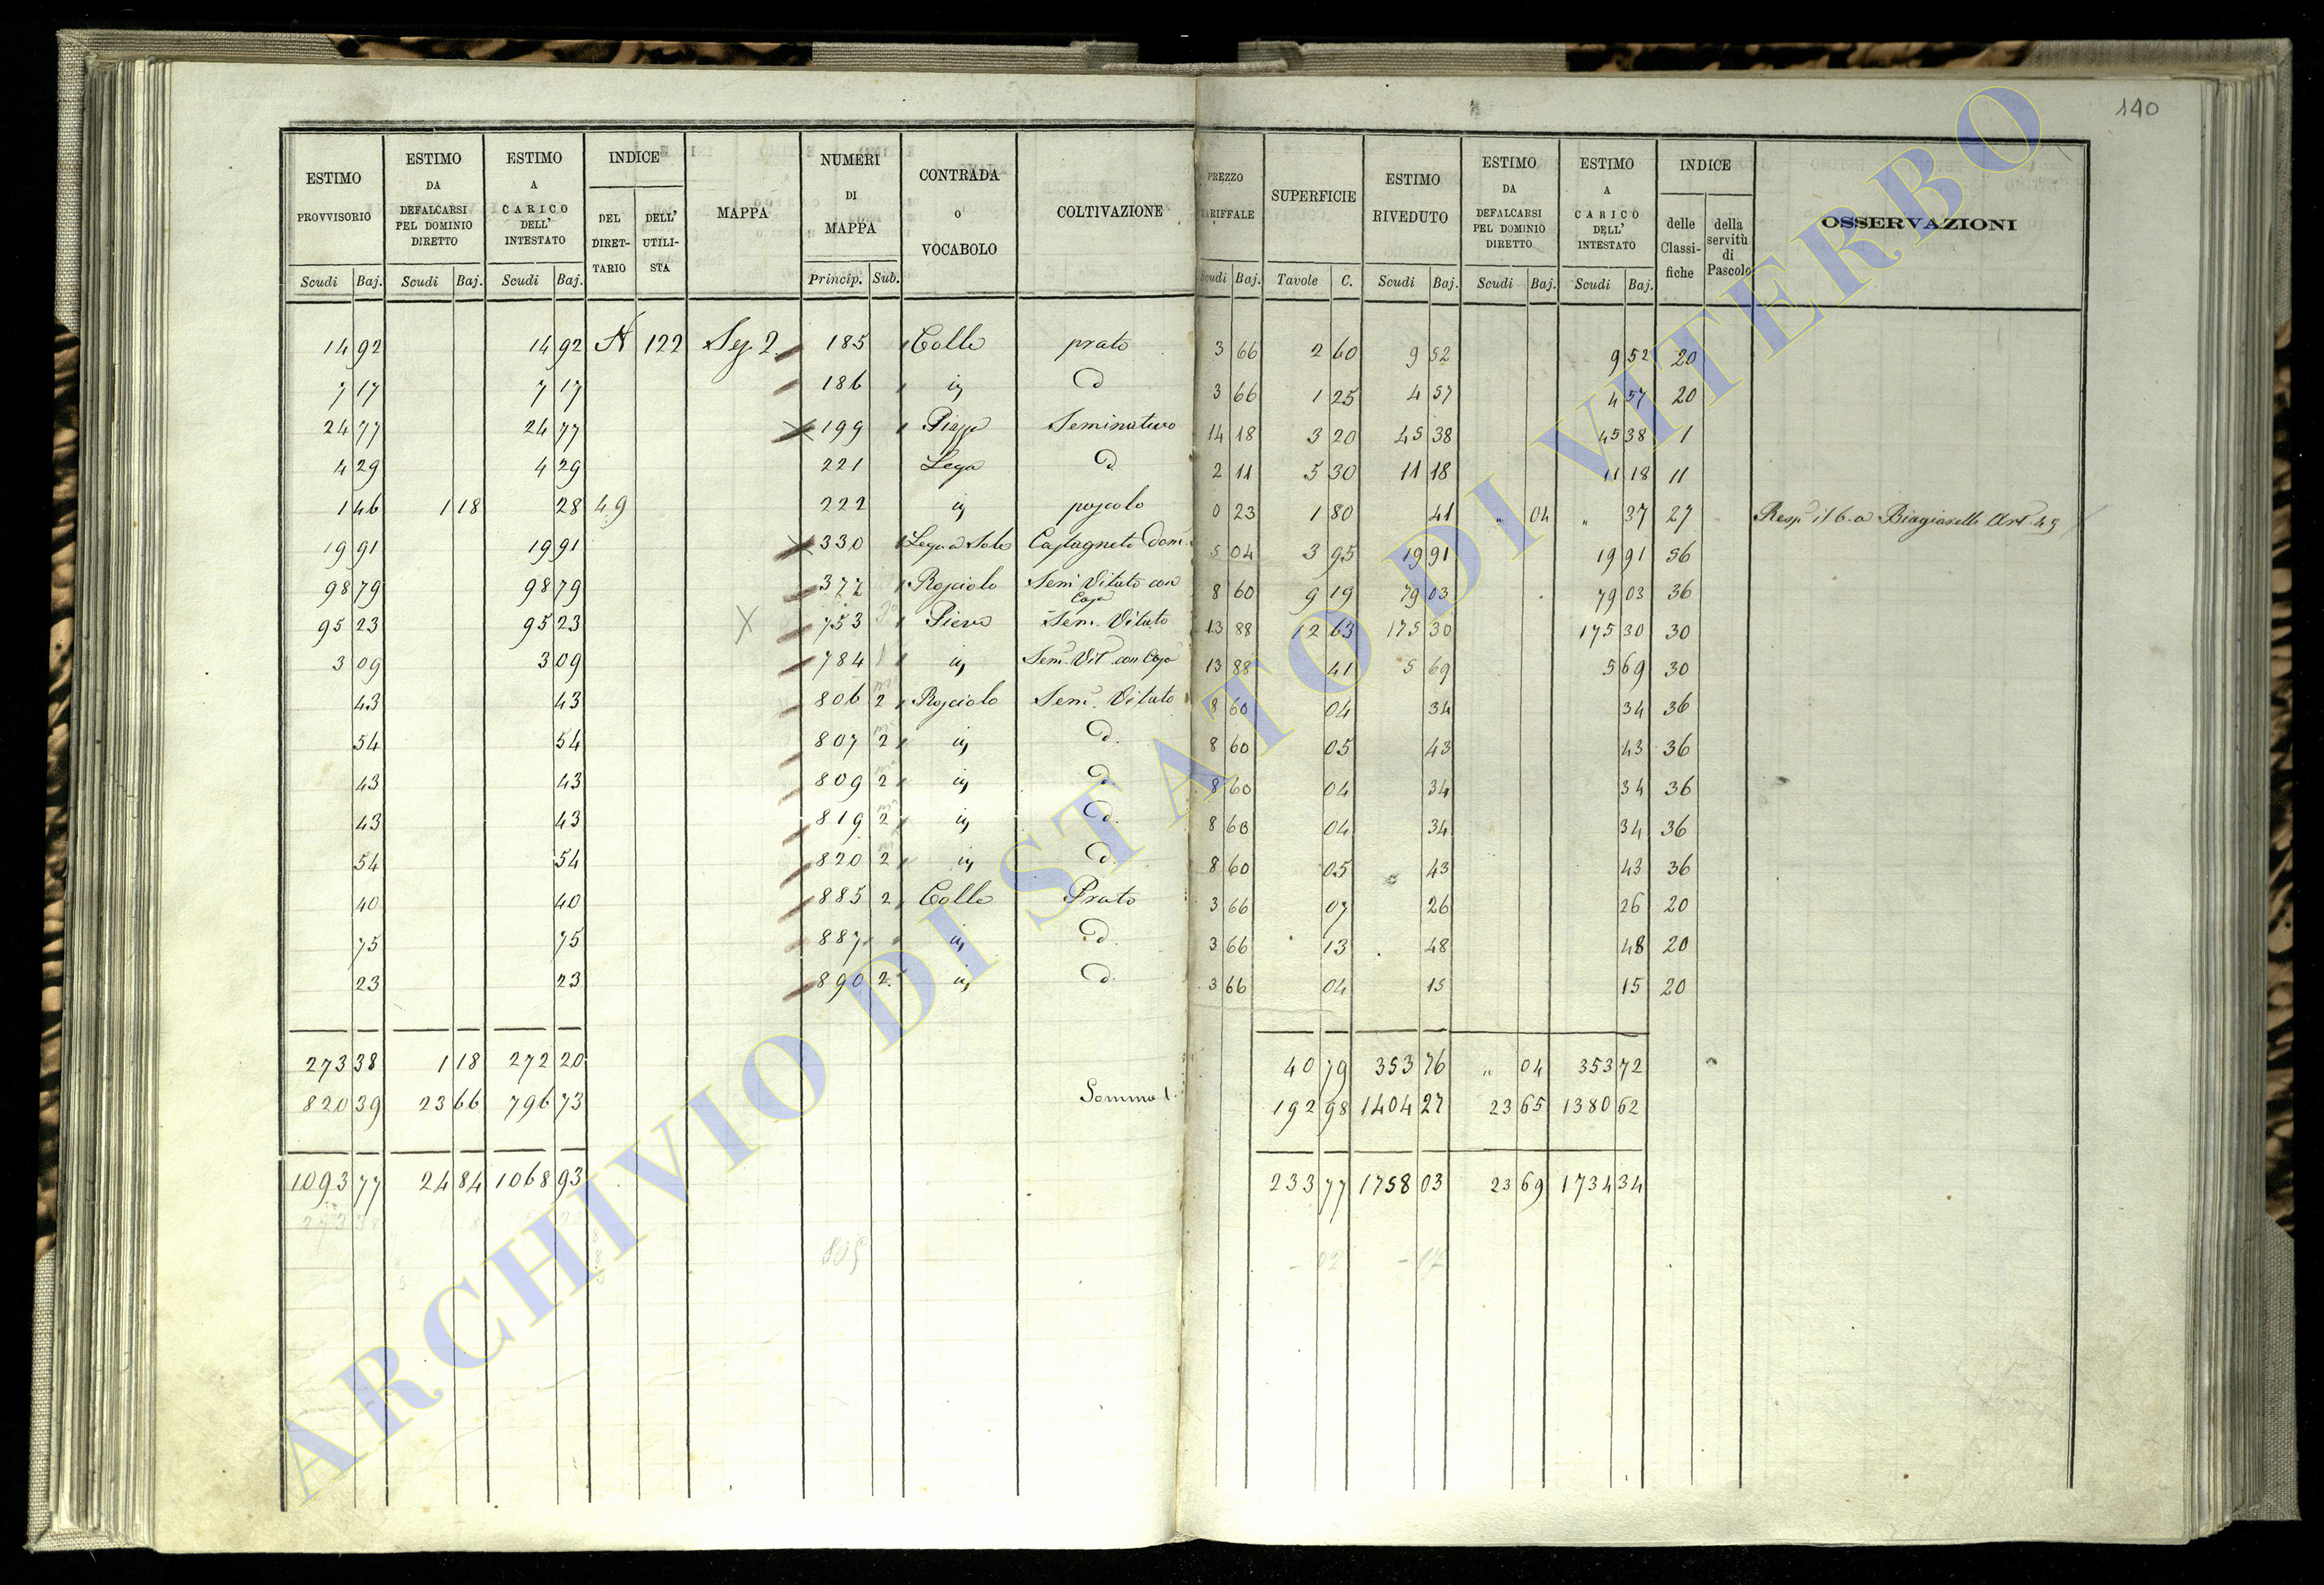 140
ESTIMO PROVVISORIO | ESTIMO DA DEFALCARSI PEL DOMINIO DIRETTO | ESTIMO A CARICO DELL' INTESTATO | INDICE | MAPPA | NUMERI DI MAPPA | CONTRADA O VOCABOLO | COLTIVAZIONE | PREZZO TARIFFALE | SUPERFICIE | ESTIMO RIVEDUTO | ESTIMO DA DEFALCARSI PEL DOMINIO DIRETTO | ESTIMO A CARICO DELL' INTESTATO | INDICE | OSSERVAZIONI
DEL DIRETTARIO | DELL' UTILISTA | delle Classifiche | della servitù di Pascolo
Scudi | Baj. | Scudi | Baj. | Scudi | Baj. | Princip. | Sub. | Scudi | Baj. | Tavole | C. | Scudi | Baj. | Scudi | Baj. | Scudi | Baj.
14 92 | 14 92 | N | 122 | Sez. 2. | 185 | Colle | prato | 3 66 | 2 60 | 9 52 | 9 52 | 20
7 17 | 7 17 | 186 | id | d | 3 66 | 1 25 | 4 57 | 4 57 | 20
24 77 | 24 77 | 199 | Piazza | Seminativo | 14 18 | 3 20 | 45 38 | 45 38 | 1
4 29 | 4 29 | 221 | Lega | d | 2 11 | 5 30 | 11 18 | 11 18 | 11
1 46 | 1 18 | 28 | 49 | 222 | id | pascolo | 0 23 | 1 80 | 41 | " 04 | " 37 | 27 | Resp il 6. a Art. 49
19 91 | 19 91 | 330 | Castagneto Dom. | 5 04 | 3 95 | 19 91 | 19 91 | 56
98 79 | 98 79 | 377 | Rosciolo | Semi Vitato con Casa | 8 60 | 9 19 | 79 03 | 79 03 | 36
95 23 | 95 23 | 753 | Pieve | Sem. Vitato | 13 88 | 12 63 | 175 30 | 175 30 | 30
3 09 | 3 09 | 784 | id | Sem. Vit. con Casa | 13 88 | 41 | 5 69 | 5 69 | 30
43 | 43 | 806 | 2 | Rosciolo | Sem. Vitato | 8 60 | 04 | 34 | 34 | 36
54 | 54 | 807 | 2 | id | d. | 8 60 | 05 | 43 | 43 | 36
43 | 43 | 809 | 2 | id | d. | 8 60 | 04 | 34 | 34 | 36
43 | 43 | 819 | 2 | id | d. | 8 60 | 04 | 34 | 34 | 36
54 | 54 | 820 | 2 | id | d. | 8 60 | 05 | 43 | 43 | 36
40 | 40 | 885 | 2 | Colle | Prato | 3 66 | 07 | 26 | 26 | 20
75 | 75 | 887 | id | d. | 3 66 | 13 | 48 | 48 | 20
23 | 23 | 890 | 2 | id | d. | 3 66 | 04 | 15 | 15 | 20
273 38 | 1 18 | 272 20 | 40 79 | 353 76 | " 04 | 353 72
820 39 | 23 66 | 796 73 | Somma 1. | 192 98 | 1404 27 | 23 65 | 1380 62
1093 77 | 24 84 | 1068 93 | 233 77 | 1758 03 | 23 69 | 1734 34
273 38
ARCHIVIO DI STATO DI VITERBO